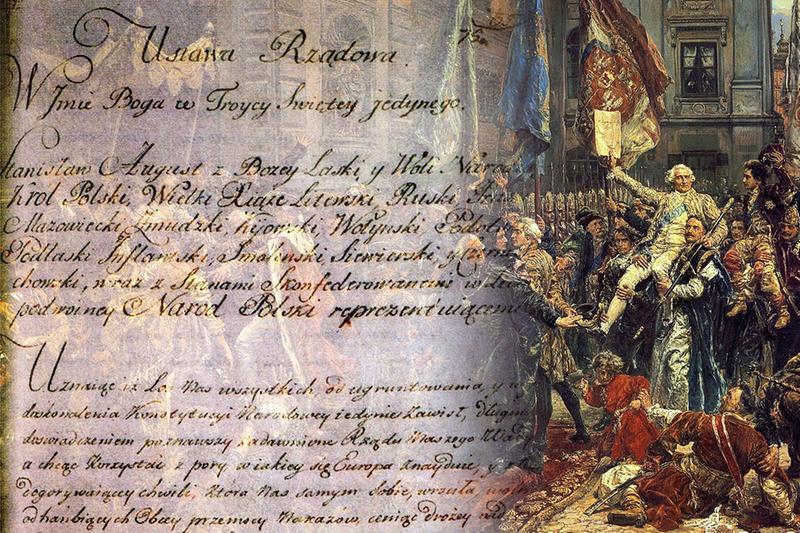 Ustawa Rządowa.
W Jmie Boga w Troycy Swiętey jedynego.
Stanisław August z Bożey Łaski, y Woli Narod
Krol Polski, Wielki Xiąże Litewski, Ruski, Prus
Mazowiecki, Zmudzki, Kijowski, Wołynski, Podol
Podlaski, Inflantski, Smoleński, Siewierski, y Czernie
chowski, wraz z Stanami Skonfederowanemi w licz
podwoiney Narod Polski reprezentuiącemi
Uznaiąc iż los nas wszystkich, od ugruntowania, y w
doskonalenia Konstytucyi Narodowey iedynie zawisł, długim
doswiadczeniem poznawszy zadawnione Rządu Naszego Wady
a chcąc korzystać z pory w iakiey się Europa znayduie, y z
dogorywaiącey chwili, która Nas samym Sobie wrociła, woln
od hańbiących Obcey przemocy Nakazów, ceniąc drożey nad